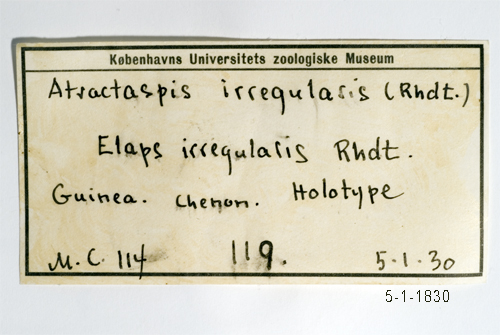 Københavns Universitets zoologiske Museum
Atractaspis irregularis (Rhdt.)
Elaps irregularis Rhdt.
Guinea. Chenon. Holotype
M.C. 114 119. 5.1.30
5-1-1830